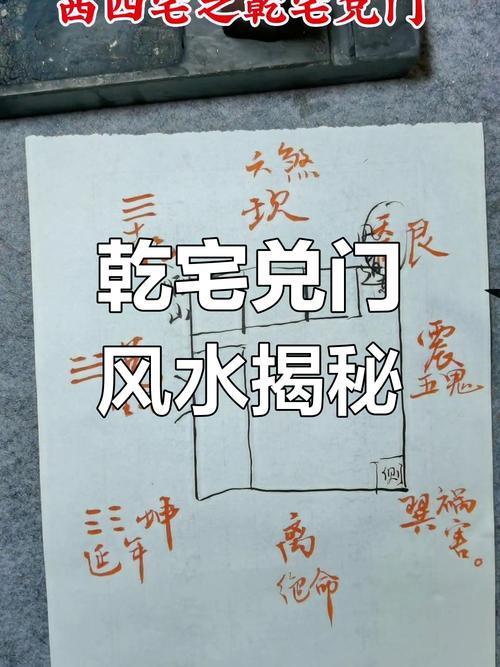 西四宅之乾宅兑门
六煞
坎
艮
乾宅兑门
风水揭秘
震
五鬼
厕
坤
延年
巽祸
害。
离
绝命